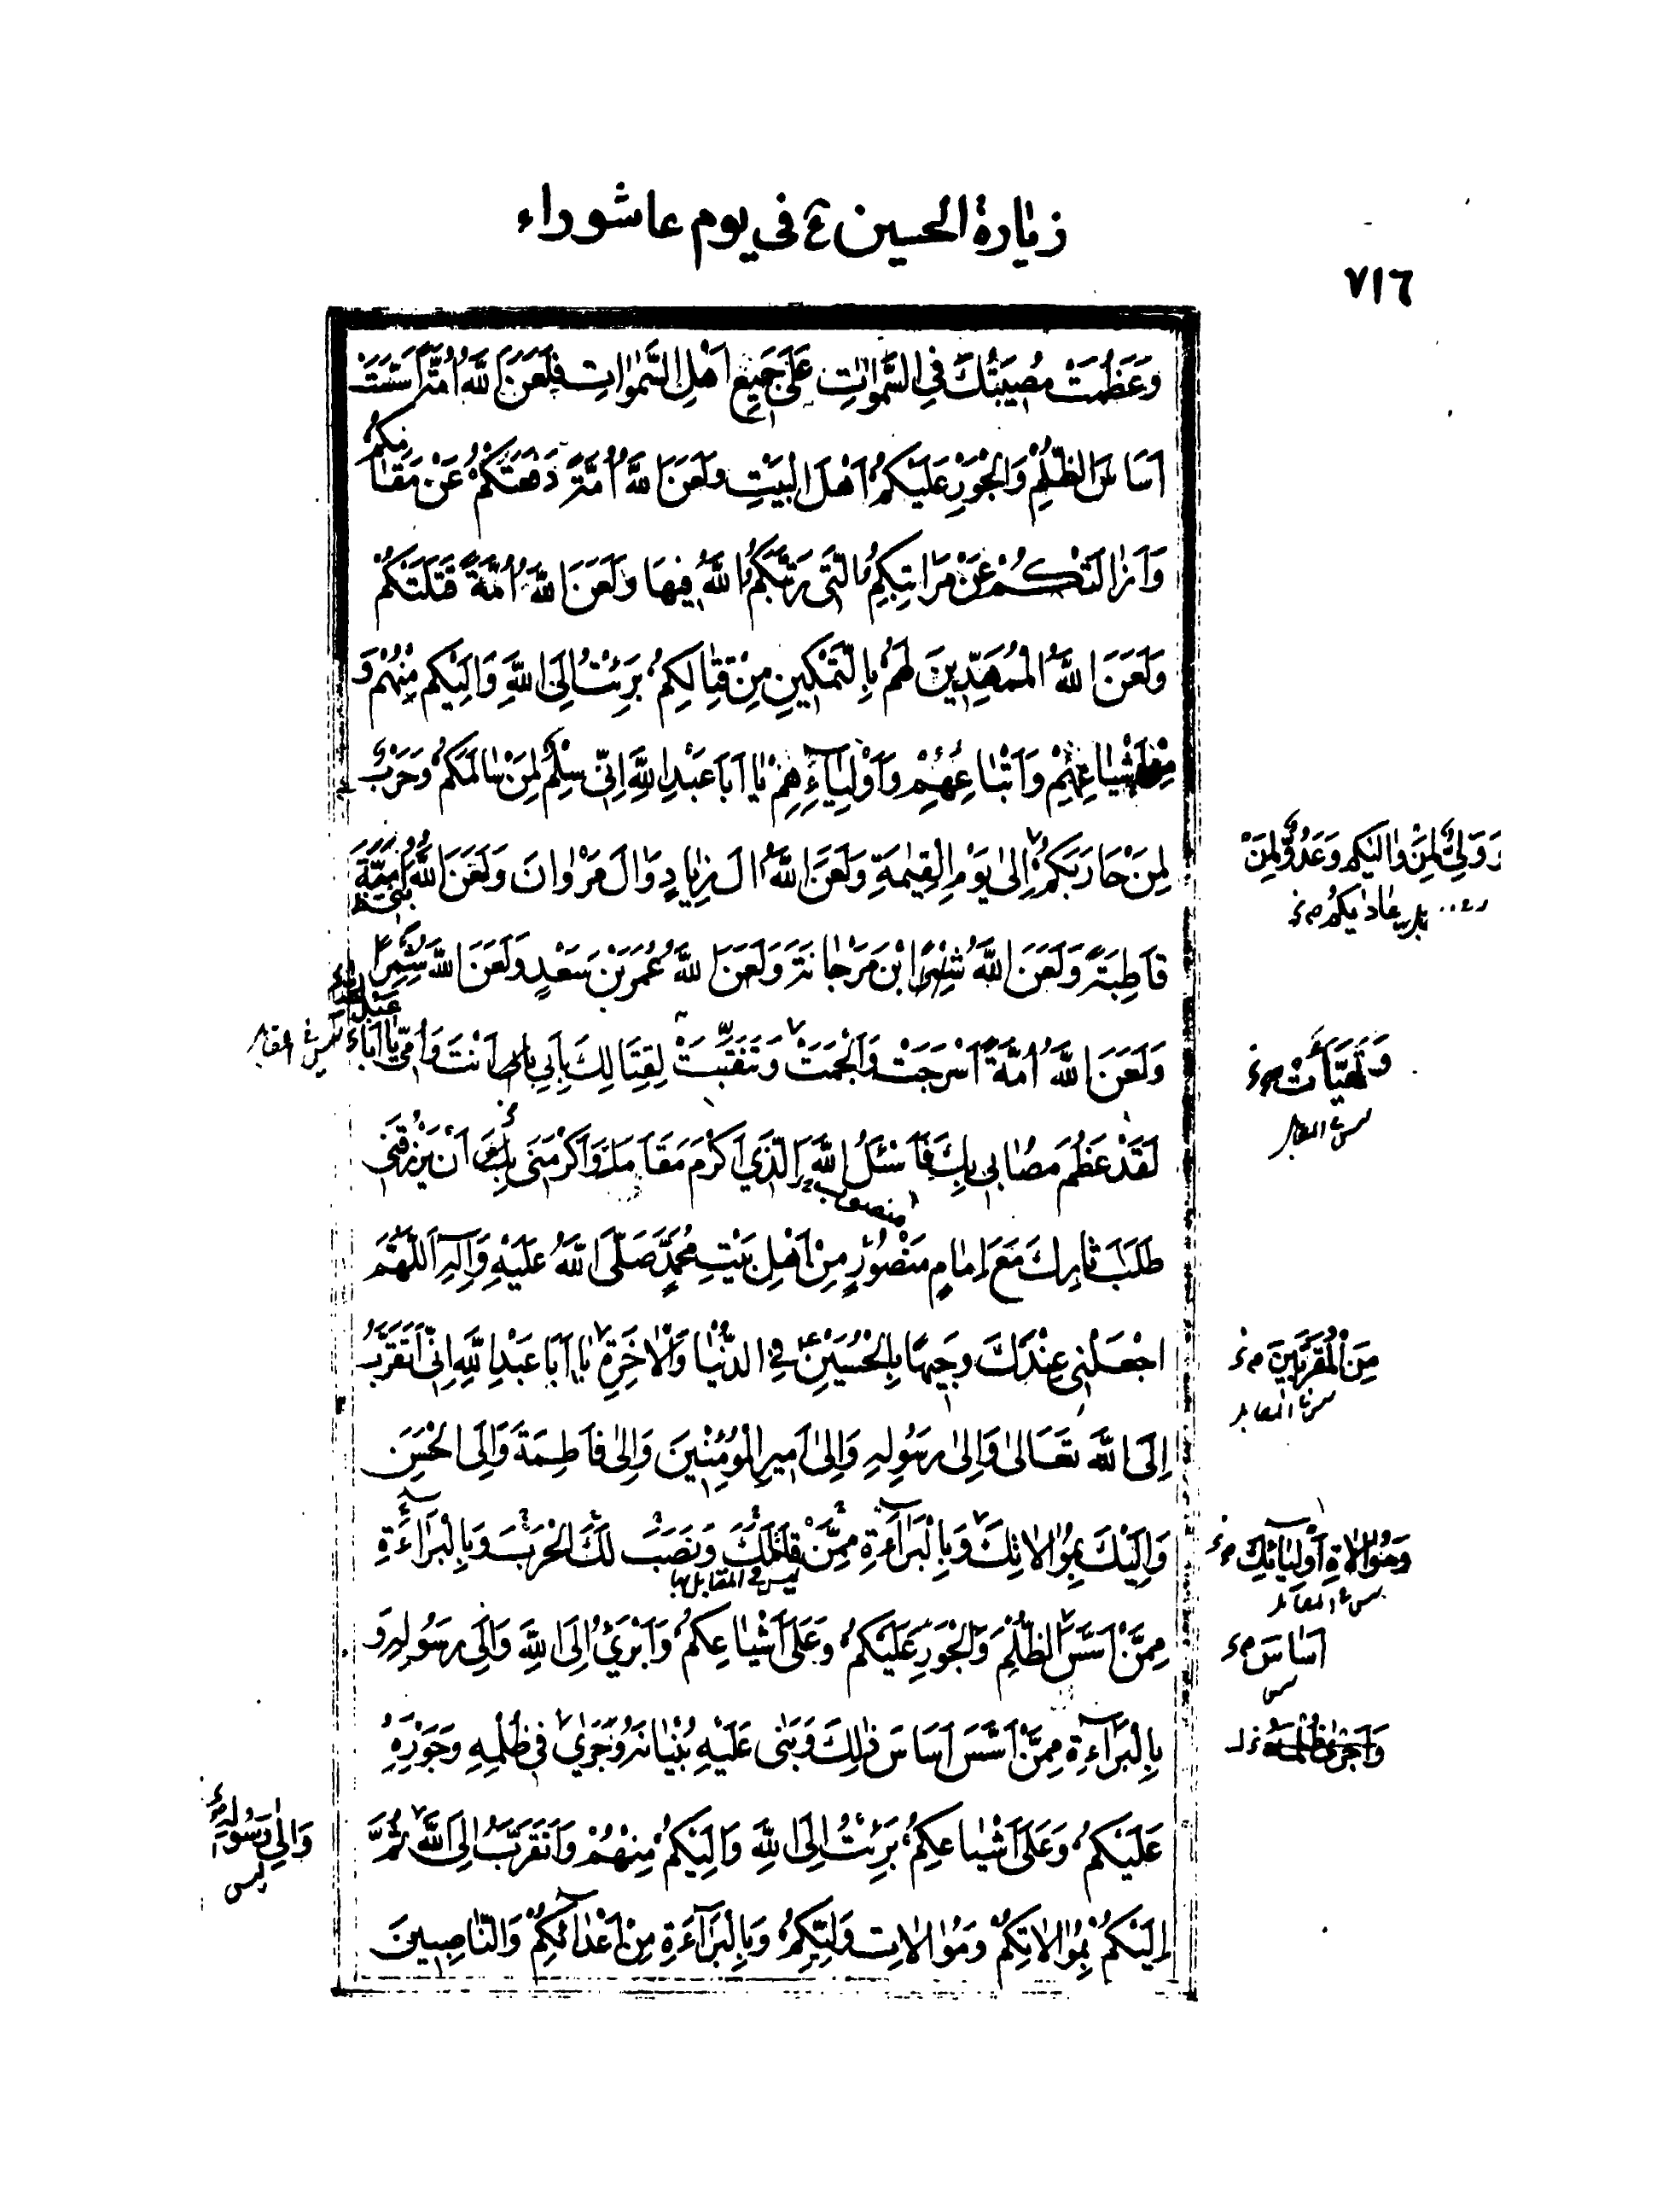 زيارة الحسين ع في يوم عاشوراء
٧١٦
وَعَظُمَتْ مُصِيبَتُكَ فِي السَّمٰوَاتِ عَلَى جَمِيعِ اَهْلِ السَّمٰوَاتِ فَلَعَنَ اللّٰهُ اُمَّةً اَسَّسَتْ
اَسَاسَ الظُّلْمِ وَالْجَوْرِ عَلَيْكُمْ اَهْلَ الْبَيْتِ وَلَعَنَ اللّٰهُ اُمَّةً دَفَعَتْكُمْ عَنْ مَقَامِكُمْ
وَاَزٰالَتْكُمْ عَنْ مَرٰاتِبِكُمُ الَّتِي رَتَّبَكُمُ اللّٰهُ فِيهَا وَلَعَنَ اللّٰهُ اُمَّةً قَتَلَتْكُمْ
وَلَعَنَ اللّٰهُ الْمُمَهِّدِينَ لَهُمْ بِالتَّمْكِينِ مِنْ قِتٰالِكُمْ بَرِئْتُ اِلَى اللّٰهِ وَاِلَيْكُمْ مِنْهُمْ وَ
مِنْ اَشْيٰاعِهِمْ وَاَتْبٰاعِهِمْ وَاَوْلِيٰآءِهِمْ يٰا اَبَا عَبْدِ اللّٰهِ اِنِّي سِلْمٌ لِمَنْ سٰالَمَكُمْ وَحَرْبٌ
لِمَنْ حَارَبَكُمْ اِلىٰ يَوْمِ الْقِيٰمَةِ وَلَعَنَ اللّٰهُ اٰلَ زِيٰادٍ وَاٰلَ مَرْوٰانَ وَلَعَنَ اللّٰهُ بَنِي اُمَيَّةَ
وَوَلِيٌّ لِمَنْ وٰالٰيكُمْ وَعَدُوٌّ لِمَنْ
عٰادٰيكُمْ
قَاطِبَةً وَلَعَنَ اللّٰهُ ابْنَ مَرْجٰانَةَ وَلَعَنَ اللّٰهُ عُمَرَ بْنَ سَعْدٍ وَلَعَنَ اللّٰهُ شِمْرًا
وَلَعَنَ اللّٰهُ اُمَّةً اَسْرَجَتْ وَاَلْجَمَتْ وَتَنَقَّبَتْ لِقِتٰالِكَ بِاَبِي اَنْتَ وَاُمِّي يٰا اَبَا عَبْدِ اللّٰهِ
وَتَهَيَّأَتْ
لَقَدْ عَظُمَ مُصٰابِي بِكَ فَاَسْئَلُ اللّٰهَ الَّذِي اَكْرَمَ مَقَامَكَ وَاَكْرَمَنِي بِكَ اَنْ يَرْزُقَنِي
طَلَبَ ثٰارِكَ مَعَ اِمٰامٍ مَنْصُورٍ مِنْ اَهْلِ بَيْتِ مُحَمَّدٍ صَلَّى اللّٰهُ عَلَيْهِ وَآلِهِ اَللّٰهُمَّ
اجْعَلْنِي عِنْدَكَ وَجِيهًا بِالْحُسَيْنِ ع فِي الدُّنْيٰا وَالْاٰخِرَةِ يٰا اَبٰا عَبْدِ اللّٰهِ اِنِّي اَتَقَرَّبُ
مِنَ الْمُقَرَّبِينَ
اِلَى اللّٰهِ تَعَالىٰ وَاِلىٰ رَسُولِهِ وَاِلىٰ اَمِيرِ الْمُؤْمِنِينَ وَاِلىٰ فَاطِمَةَ وَاِلَى الْحَسَنِ
وَاِلَيْكَ بِمُوٰالٰاتِكَ وَبِالْبَرٰآءَةِ مِمَّنْ قَاتَلَكَ وَنَصَبَ لَكَ الْحَرْبَ وَبِالْبَرٰآءَةِ
ليس في المقابل بها
وَمُوٰالٰاةِ اَوْلِيٰائِكَ
مِمَّنْ اَسَّسَ الظُّلْمَ وَالْجَوْرَ عَلَيْكُمْ وَعَلىٰ اَشْيٰاعِكُمْ وَاَبْرَئُ اِلَى اللّٰهِ وَاِلىٰ رَسُولِهِ وَ
اَسٰاسَ
بِالْبَرٰآءَةِ مِمَّنْ اَسَّسَ اَسَاسَ ذٰلِكَ وَبَنٰى عَلَيْهِ بُنْيٰانَهُ وَجَرٰى فِي ظُلْمِهِ وَجَوْرِهِ
عَلَيْكُمْ وَعَلىٰ اَشْيٰاعِكُمْ بَرِئْتُ اِلَى اللّٰهِ وَاِلَيْكُمْ مِنْهُمْ وَاَتَقَرَّبُ اِلَى اللّٰهِ ثُمَّ
وَاِلىٰ رَسُولِهِ
اِلَيْكُمْ بِمُوٰالٰاتِكُمْ وَمُوٰالٰاتِ وَلِيِّكُمْ وَبِالْبَرٰآءَةِ مِنْ اَعْدٰائِكُمْ وَالنّٰاصِبِينَ